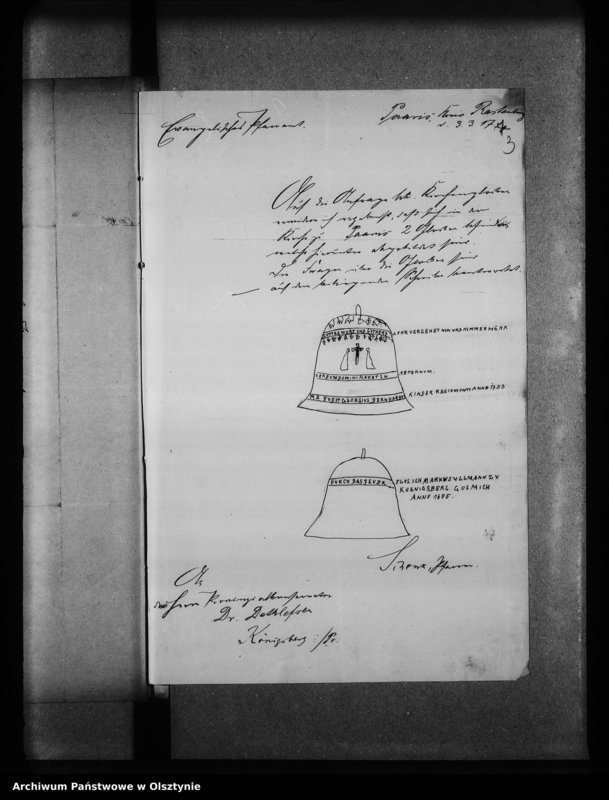 Evangelisches Pfarramt.
Paaris, Kreis Rastenburg
d. 3. 3. 17.
3
Auf die Anfrage betr. Kirchenglocken
ich ergebenst, daß sich in der
Kirche zu Paaris 2 Glocken befinden,
welche hierunter abgebildet sind.
Die Fragen über die Glocken sind
auf dem beiliegenden Schreiben beantwortet.
GOTTES WORT UND LUTHERS LEHR VERGEHET NUN UND NIMMERMEHR
VERBUM DOMINI MANET IN AETERNUM.
ME FUDIT GEORGIUS BERNHARDUS KINDER REGIOMONTI ANNO 1733
DURCH DAS FEUER FLOS ICH MARKUS ULLMANN ZU
KOENIGSBERG GOS MICH
ANNO
Pfarrer.
An
den Herrn Provinzialkonservator
Dr. Dethlefsen
Königsberg i/Pr.
Archiwum Państwowe w Olsztynie